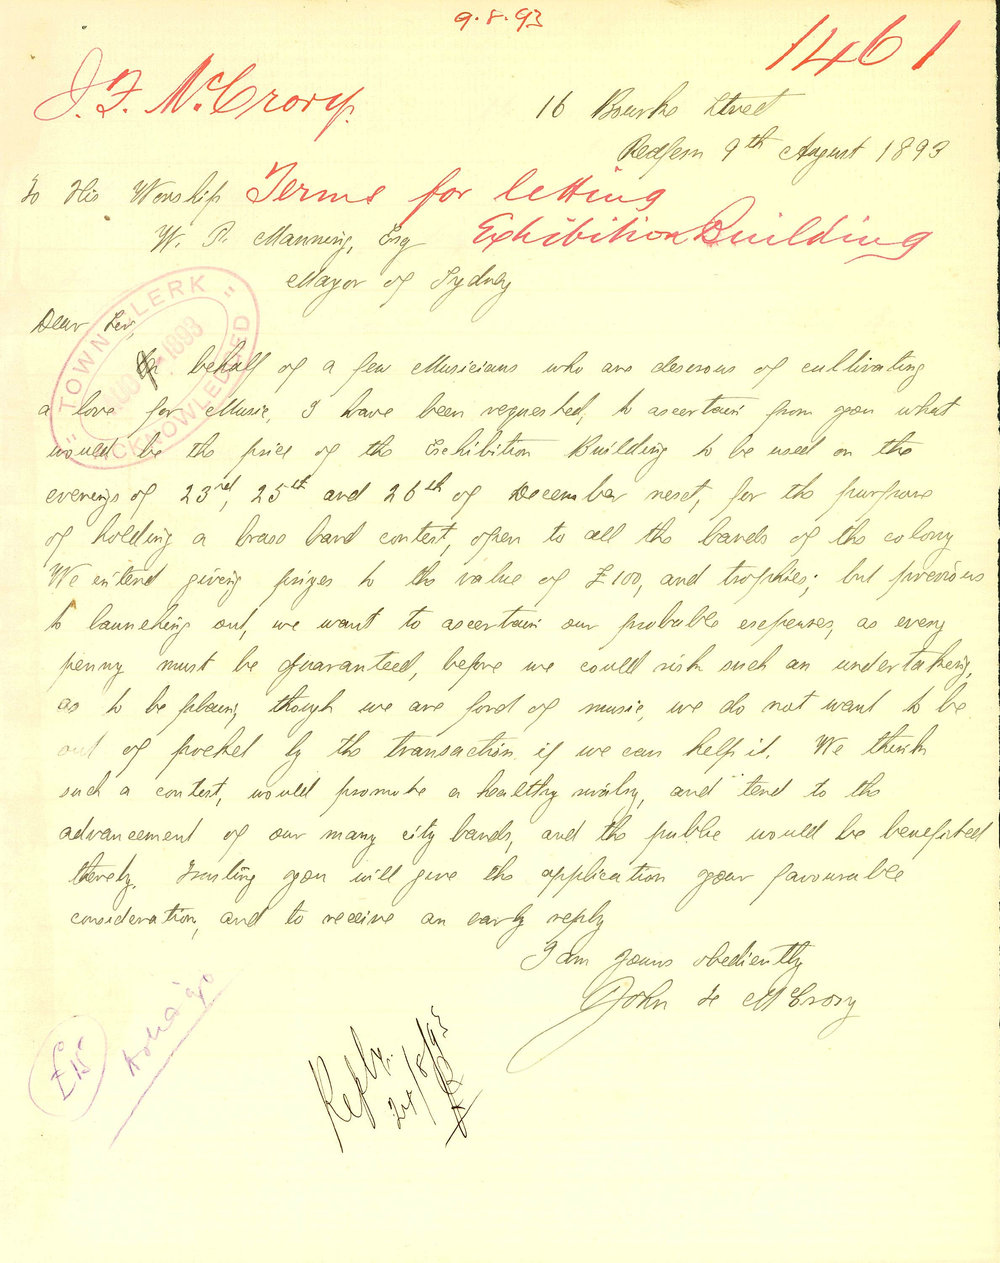 9.8.93
1461
J. F. McCrory.
16 Bourke Street
Redfern 9th August 1893
To His Worship
Terms for letting
W. P. Manning, Esq
Exhibition Building
Mayor of Sydney
"TOWN CLERK"
AUG 1893
ACKNOWLEDGED
Dear Sir,
On behalf of a few Musicians who are desirous of cultivating
a love for Music, I have been requested, to ascertain from you what
would be the price of the Exhibition Building to be used on the
evenings of 23rd, 25th and 26th of December next, for the purpose
of holding a brass band contest, open to all the bands of the colony
We intend giving prizes to the value of £100, and trophies; but previous
to launching out, we want to ascertain our probable expenses, as every
penny must be guaranteed, before we could risk such an undertaking,
as to be plain, though we are fond of music, we do not want to be
out of pocket by the transaction if we can help it. We think
such a contest, would promote a healthy rivalry, and tend to the
advancement of our many city bands, and the public would be benefited
thereby. Trusting you will give the application your favourable
consideration, and to receive an early reply
I am yours obediently
John F McCrory
£15
Reply.
24/8/93